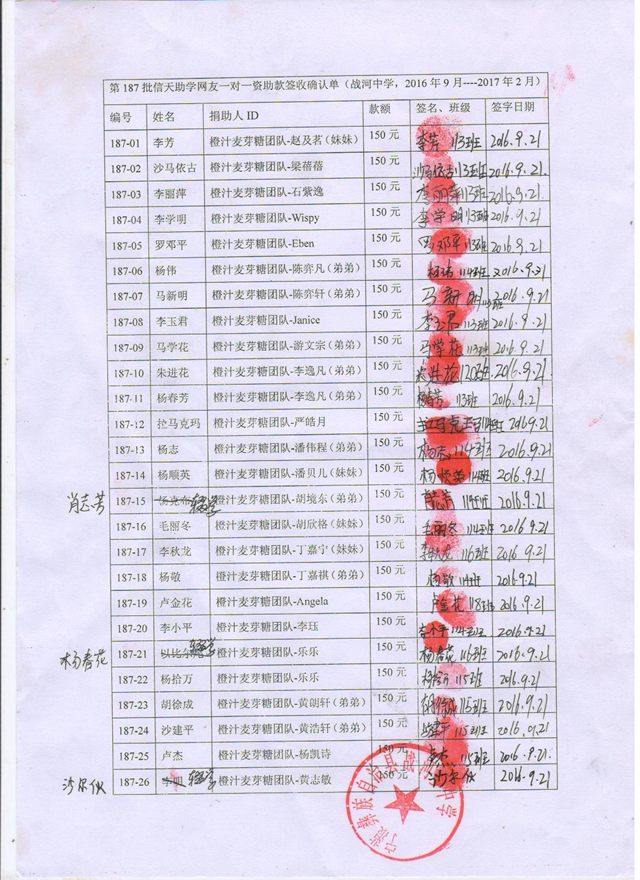 第187批信天助学网友一对一资助款签收确认单（战河中学，2016年9月----2017年2月）
编号 姓名 捐助人ID 款额 签名、班级 签字日期
187-01 李芳 橙汁麦芽糖团队-赵及茗（妹妹） 150元 李芳 113班 2016.9.21
187-02 沙马依古 橙汁麦芽糖团队-梁蓓蓓 150元 沙马依古113班 2016.9.21
187-03 李丽萍 橙汁麦芽糖团队-石紫逸 150元 李丽萍113班 2016.9.21
187-04 李学明 橙汁麦芽糖团队-Wispy 150元 李学明113班 2016.9.21
187-05 罗邓平 橙汁麦芽糖团队-Eben 150元 罗邓平113班 2016.9.21
187-06 杨伟 橙汁麦芽糖团队-陈弈凡（弟弟） 150元 杨伟 114班 2016.9.21
187-07 马新明 橙汁麦芽糖团队-陈弈轩（弟弟） 150元 马新明113班 2016.9.21
187-08 李玉君 橙汁麦芽糖团队-Janice 150元 李玉君 113班 2016.9.21
187-09 马学花 橙汁麦芽糖团队-游文宗（弟弟） 150元 马学花 113班 2016.9.21
187-10 朱进花 橙汁麦芽糖团队-李逸凡（弟弟） 150元 朱进花120班 2016.9.21
187-11 杨春芳 橙汁麦芽糖团队-李逸凡（弟弟） 150元 杨春芳 113班 2016.9.21
187-12 拉马克玛 橙汁麦芽糖团队-严皓月 150元 114班 2016.9.21
187-13 杨志 橙汁麦芽糖团队-潘伟程（弟弟） 150元 杨志 114班 2016.9.21
187-14 杨顺英 橙汁麦芽糖团队-潘贝儿（妹妹） 150元 杨顺英 114班 2016.9.21
肖志芳 187-15 杨克布 转学 橙汁麦芽糖团队-胡境东（弟弟） 150元 肖志芳 114班 2016.9.21
187-16 毛丽冬 橙汁麦芽糖团队-胡欣格（妹妹） 150元 毛丽冬 114班 2016.9.21
187-17 李秋龙 橙汁麦芽糖团队-丁嘉宁（妹妹） 150元 李秋龙 116班 2016.9.21
187-18 杨敬 橙汁麦芽糖团队-丁嘉祺（弟弟） 150元 杨敬 114班 2016.9.21
187-19 卢金花 橙汁麦芽糖团队-Angela 150元 卢金花 118班 2016.9.21
187-20 李小平 橙汁麦芽糖团队-李珏 150元 李小平 114班 2016.9.21
杨春花 187-21 转学 橙汁麦芽糖团队-乐乐 150元 杨春花 116班 2016.9.21
187-22 杨拾万 橙汁麦芽糖团队-乐乐 150元 杨拾万 115班 2016.9.21
187-23 胡徐成 橙汁麦芽糖团队-黄朗轩（弟弟） 150元 胡徐成 115班 2016.9.21
187-24 沙建平 橙汁麦芽糖团队-黄浩轩（弟弟） 150元 沙建平 115班 2016.9.21
187-25 卢杰 橙汁麦芽糖团队-杨凯诗 150元 卢杰 115班 2016.9.21
沙尔伙 187-26 转学 橙汁麦芽糖团队-黄志敏 150元 沙尔伙 2016.9.21
宁蒗彝族自治县战河中学